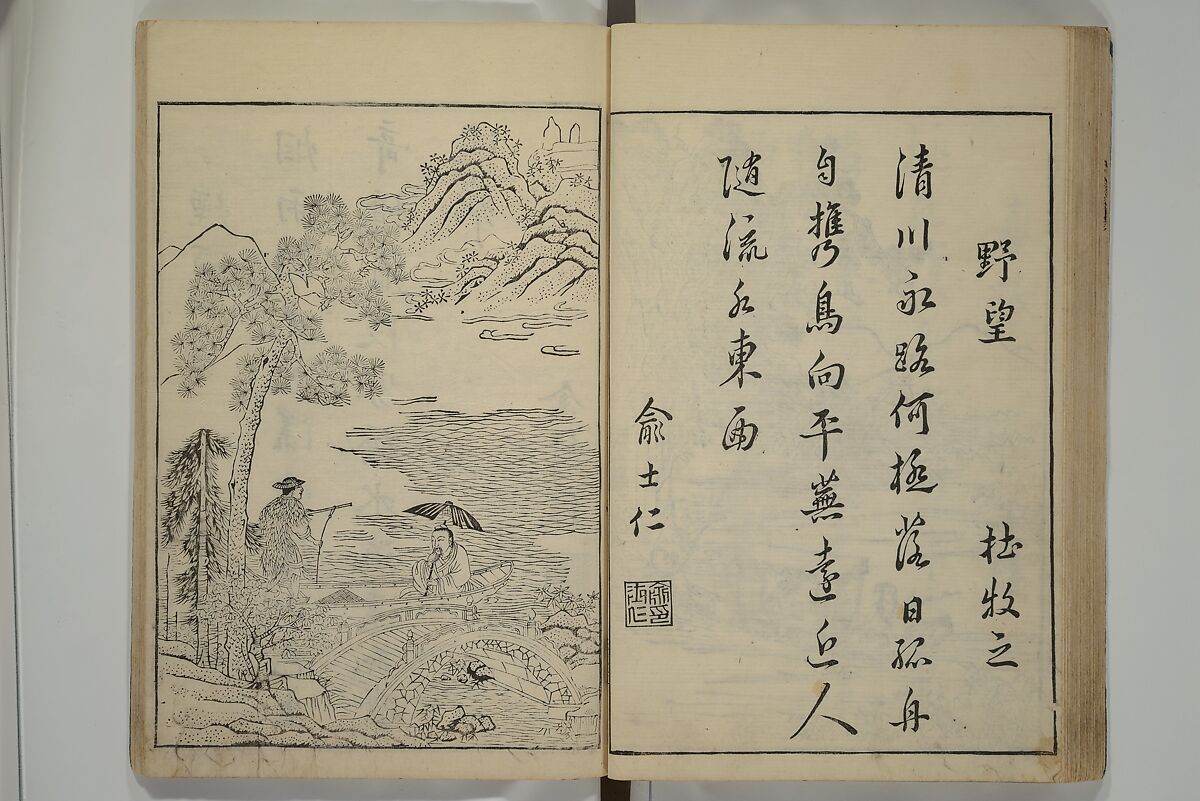 野望 杜牧之
清川永路何極落日孤舟
自携鳥向平蕪遠近人
随流水東西
俞士仁